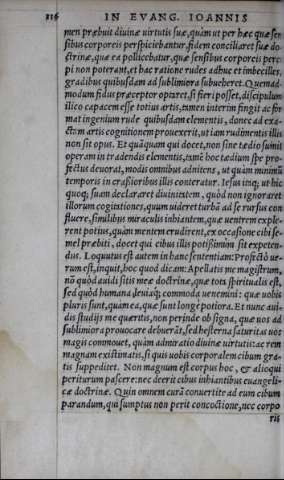 116 IN EVANG. IOANNIS
men præbuit diuinæ virtutis suæ, quàm ut per hæc quæ sen
sibus corporeis perspiciebantur, fidem conciliaret suæ do
ctrinæ, quæ ea pollicebatur, quæ sensibus corporeis perci
pi non poterant, et hac ratione rudes adhuc et imbecilles,
gradibus quibusdam ad sublimiora subueheret. Quemad
modum fidus præceptor optaret, si fieri posset, discipulum
illico capacem esse totius artis, tamen interim fingit ac for
mat ingenium rude quibusdam elementis, donec ad exa
ctam artis cognitionem prouexerit, ut iam rudimentis illis
non sit opus. Et quãquam qui docet, non sine tædio sumit
operam in tradendis elementis, tamẽ hoc tædium spe pro
fectus deuorat, modis omnibus adnitens, ut quàm minimũ
temporis in crassioribus illis conteratur. Iesus itaq; ut hic
quoq; suam declararet diuinitatem, quòd non ignoraret
illorum cogitationes, quum uideret turbã ad se rursus con
fluere, similibus miraculis inhiantem, quæ uentrem exple
rent potius, quàm mentem erudirent, ex occasione cibi se-
mel præbiti, docet qui cibus illis potissimùm sit expeten-
dus. Loquutus est autem in hanc sententiam: Profectò ue-
rum est, inquit, hoc quod dicam: Apellatis me magistrum,
nõ quòd auidi sitis meæ doctrinæ, quæ tota spiritualis est,
sed quòd humana leuiaq; commoda uenemini: quæ uobis
pluris sunt, quàm ea, quæ sunt longè potiora. Et nunc aui-
dis studijs me quæritis, non perinde ob signa, quæ uos ad
sublimiora prouocare debuerãt, sed hesterna saturitas uos
magis commouet, quàm admiratio diuinæ uirtutis: ac rem
magnam existimatis, si quis uobis corporalem cibum gra-
tis suppeditet. Non magnum est corpus hoc, & alioqui
periturum pascere: nec deerit cibus inhiantibus euangeli-
cæ doctrinæ. Quin omnem curã conuertite ad eum cibum
parandum, qui sumptus non perit concoctione, nec corpo
ris